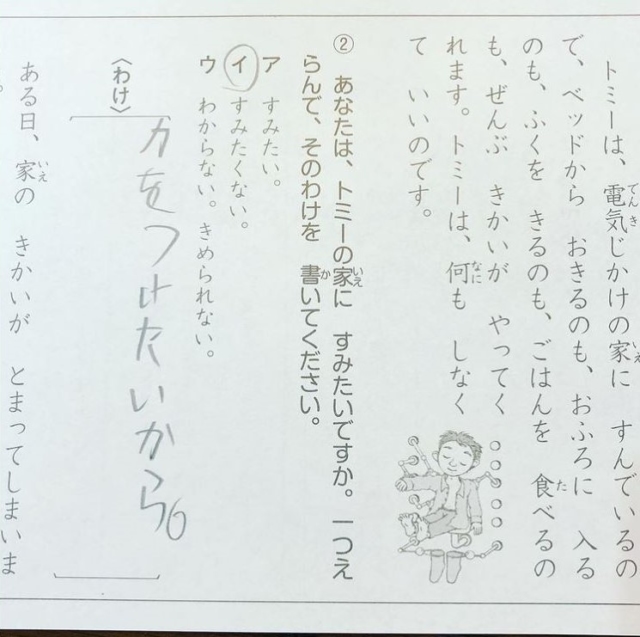 トミーは、電気じかけの家に すんでいるの
で、ベッドから おきるのも、おふろに 入る
のも、ふくを きるのも、ごはんを 食べるの
も、ぜんぶ きかいが やってく
れます。トミーは、何も しなく
て いいのです。
② あなたは、トミーの家に すみたいですか。一つえ
らんで、そのわけを 書いてください。
ア すみたい。
イ すみたくない。
ウ わからない。きめられない。
〈わけ〉
力をつけたいから。
ある日、家の きかいが とまってしまいま